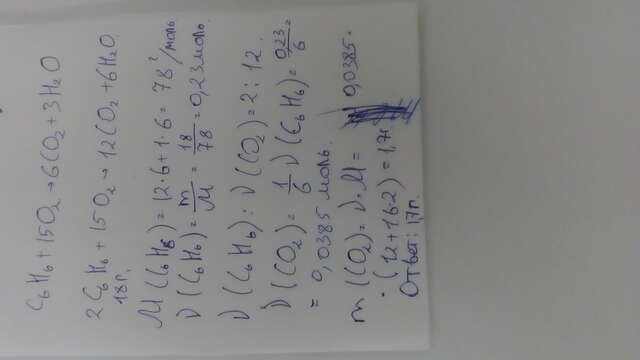 C₆H₆ + 15O₂ → 6CO₂ + 3H₂O
2C₆H₆ + 15O₂ → 12CO₂ + 6H₂O
18г.
M(C₆H₆) = 12·6 + 1·6 = 78 г/моль
ν(C₆H₆) = m/M = 18/78 = 0,23 моль.
ν(C₆H₆) : ν(CO₂) = 2 : 12.
ν(CO₂) = 1/6 ν(C₆H₆) = 0,23/6 =
= 0,0385 моль.
m(CO₂) = ν·M = 0,0385·
·(12 + 16·2) = 1,7г
Ответ: 1,7г.